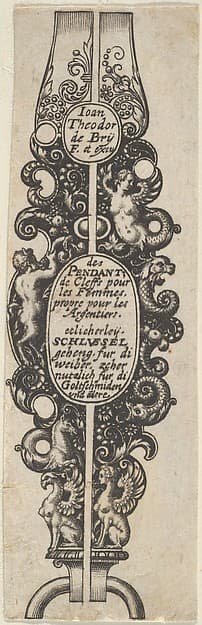 Ioan
Theodor
de Brÿ
F. et excu
des
PENDANTS
de Cleffs pour
les Fommes.
propre pour les
Argentiers.
etlicherleÿ-
SCHLVSSEL
geheng. fur di
weiber. zcher
nutzlich fur di
Goltschmiden
vnd adere.